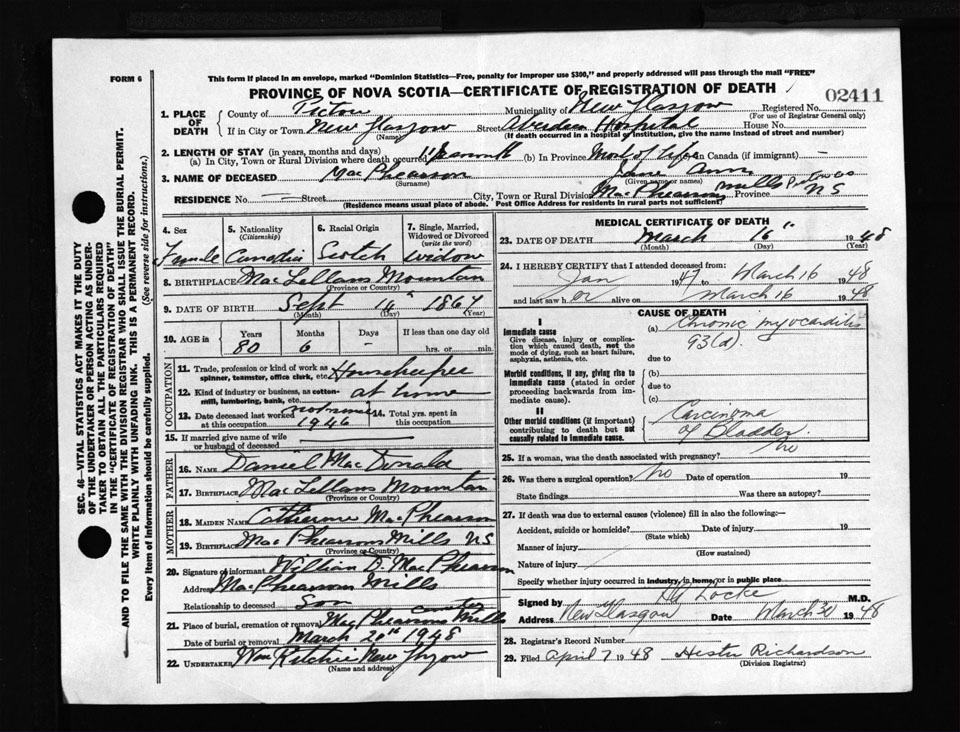 FORM 6
This form if placed in an envelope, marked "Dominion Statistics—Free, penalty for improper use $300," and properly addressed will pass through the mail "FREE"
PROVINCE OF NOVA SCOTIA—CERTIFICATE OF REGISTRATION OF DEATH
02411
1. PLACE OF DEATH { County of Pictou Municipality of New Glasgow Registered No.
(For use of Registrar General only)
If in City or Town New Glasgow Street Aberdeen Hospital House No.
(Name) (If death occurred in a hospital or institution, give the name instead of street and number)
2. LENGTH OF STAY (in years, months and days)
(a) In City, Town or Rural Division where death occurred 1 month (b) In Province Most of Life In Canada (if immigrant) —
3. NAME OF DECEASED MacPhearson Jane Ann
(Surname) (Given name or names)
RESIDENCE No. — Street City, Town or Rural Division MacPhearsons Mills Pictou Co Province NS
(Residence means usual place of abode. Post Office Address for residents in rural parts not sufficient)
4. Sex 5. Nationality (Citizenship) 6. Racial Origin 7. Single, Married, Widowed or Divorced (write the word)
Female Canadian Scotch widow
8. BIRTHPLACE MacLellans Mountain
(Province or Country)
9. DATE OF BIRTH Sept 16" 1867
(Month) (Day) (Year)
10. AGE in Years Months Days If less than one day old
80 6 - hrs. or min.
OCCUPATION
11. Trade, profession or kind of work as spinner, teamster, office clerk, etc. Housekeeper
12. Kind of industry or business, as cotton-mill, lumbering, bank, etc. at home
13. Date deceased last worked at this occupation 1946 14. Total yrs. spent in this occupation
15. If married give name of wife or husband of deceased
FATHER
16. NAME Daniel MacDonald
17. BIRTHPLACE MacLellans Mountain
(Province or Country)
MOTHER
18. MAIDEN NAME Catherine MacPhearson
19. BIRTHPLACE MacPhearsons Mills NS
(Province or Country)
20. Signature of informant William D. MacPhearson
Address MacPhearsons Mills
Relationship to deceased Son
21. Place of burial, cremation or removal MacPhearsons Mills cemetery
Date of burial or removal March 20th 1948
22. UNDERTAKER Wm Ritchie New Glasgow
(Name and address)
MEDICAL CERTIFICATE OF DEATH
23. DATE OF DEATH March 16" 1948
(Month) (Day) (Year)
24. I HEREBY CERTIFY that I attended deceased from:
Jan 1947 March 16 1948
and last saw her alive on March 16 1948
CAUSE OF DEATH
I
Immediate cause
Give disease, injury or complication which caused death, not the mode of dying, such as heart failure, asphyxia, asthenia, etc.
(a) Chronic myocarditis
93(d).
due to
Morbid conditions, if any, giving rise to immediate cause (stated in order proceeding backwards from immediate cause).
(b)
due to
(c)
II
Other morbid conditions (if important) contributing to death but not causally related to immediate cause.
Carcinoma
of Bladder.
25. If a woman, was the death associated with pregnancy? no
26. Was there a surgical operation? No Date of operation 19
State findings Was there an autopsy?
27. If death was due to external causes (violence) fill in also the following:—
Accident, suicide or homicide? Date of injury 19
(State which)
Manner of injury
(How sustained)
Nature of injury
Specify whether injury occurred in industry, in home, or in public place
Signed by Locke M.D.
Address New Glasgow Date March 1948
28. Registrar's Record Number
29. Filed April 7 1948 Hester Richardson
(Division Registrar)
SEC. 46—VITAL STATISTICS ACT MAKES IT THE DUTY
OF THE UNDERTAKER OR PERSON ACTING AS UNDER-
TAKER TO OBTAIN ALL THE PARTICULARS REQUIRED
IN THE "CERTIFICATE OF REGISTRATION OF DEATH"
AND TO FILE THE SAME WITH THE DIVISION REGISTRAR WHO SHALL ISSUE THE BURIAL PERMIT.
WRITE PLAINLY WITH UNFADING INK. THIS IS A PERMANENT RECORD.
Every item of information should be carefully supplied. (See reverse side for instructions.)